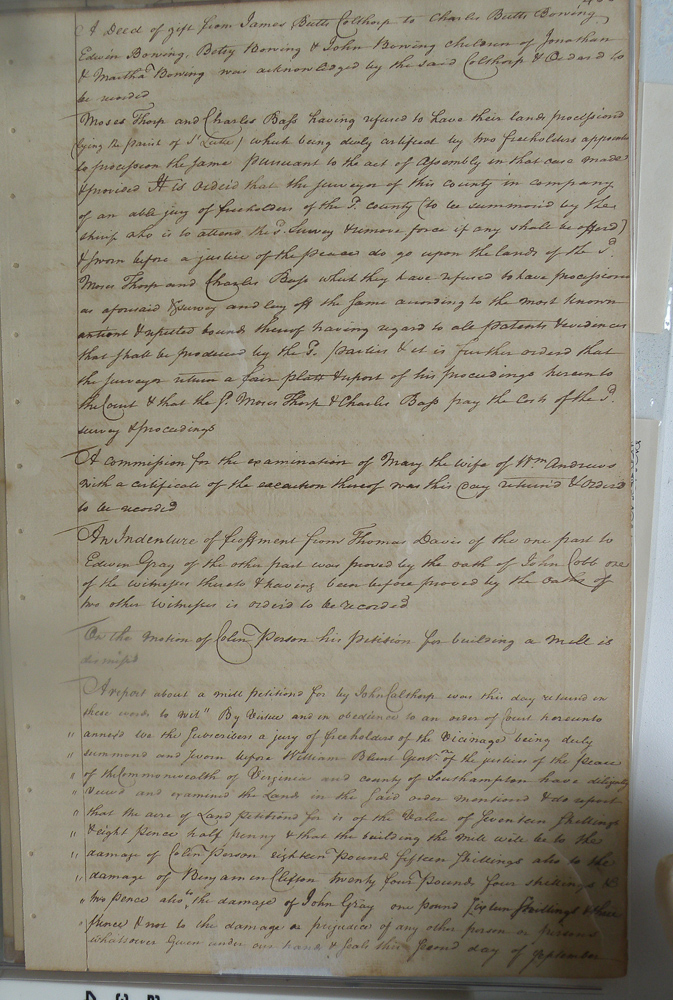 A Deed of gift from James Butts Colthorp to Charles Butts Bowing
Edwin Bowing, Betsy Bowing & John Bowing children of Jonathan
& Martha Bowing was acknowledged by the said Colthorp & Ordered to
be recorded
Moses Thorp and Charles Bass having refused to have their lands processiond
lying the parish of St. Luke) which being duly artified by two freeholders appointed
to procession the same pursuant to the act of Assembly in that case made
& provided It is orderd that the surveyor of this county in company
of an able jury of freeholders of the Sd. county (to be summond by the
sherif who is to attend the Sd. Survey & remove force if any shall be offerd)
& sworn before a justice of the peace do go upon the lands of the Sd.
Moses Thorp and Charles Bass which they have refused to have processiond
as aforesaid & survey and lay off the same according to the most known
antient & reputed bounds thereof having regard to all patents & evidences
that shall be produced by the Sd. parties & it is further orderd that
the surveyor return a fair platt & report of his proceedings herein to
the Court & that the Sd. Moses Thorp & Charles Bass pay the Costs of the Sd.
survey & proceedings
A commission for the examination of Mary the wife of Wm Andrews
with a certificate of the execution thereof was this day returnd & Orderd
to be recorded
An Indenture of feoffment from Thomas Davis of the one part to
Edwin Gray of the other part was proved by the oath of John Cobb one
of the witnesses thereto & having been before proved by the oaths of
two other Witnesses is orderd to be recorded
On the motion of Colin Person his petition for building a mill is
dismissd
A report about a mill petitiond for by John Calthorp was this day returnd in
these words to wit" By virtue and in obedience to an order of Court hereunto
" annexd we the Subscribers a jury of freeholders of the Vicinage being duly
" summond and sworn before William Blunt Gent. one of the justices of the peace
" of the Commonwealth of Virginia and county of Southampton have diligently
" viewd and examined the Lands in the said order mentiond & do report
" that the acre of Land petitiond for is of the Value of Seventeen Shillings
" & eight pence half penny & that the building the mill will be to the
" damage of Colin Person eighteen Pound fifteen Shillings also to the
" damage of Benjamin Clifton twenty four Pounds four shillings &
" two pence also to the damage of John Gray one pound sixteen Shillings & three
" pence & not to the damage or prejudice of any other person or persons
whatsoever Given under our hands & seals this second day of September